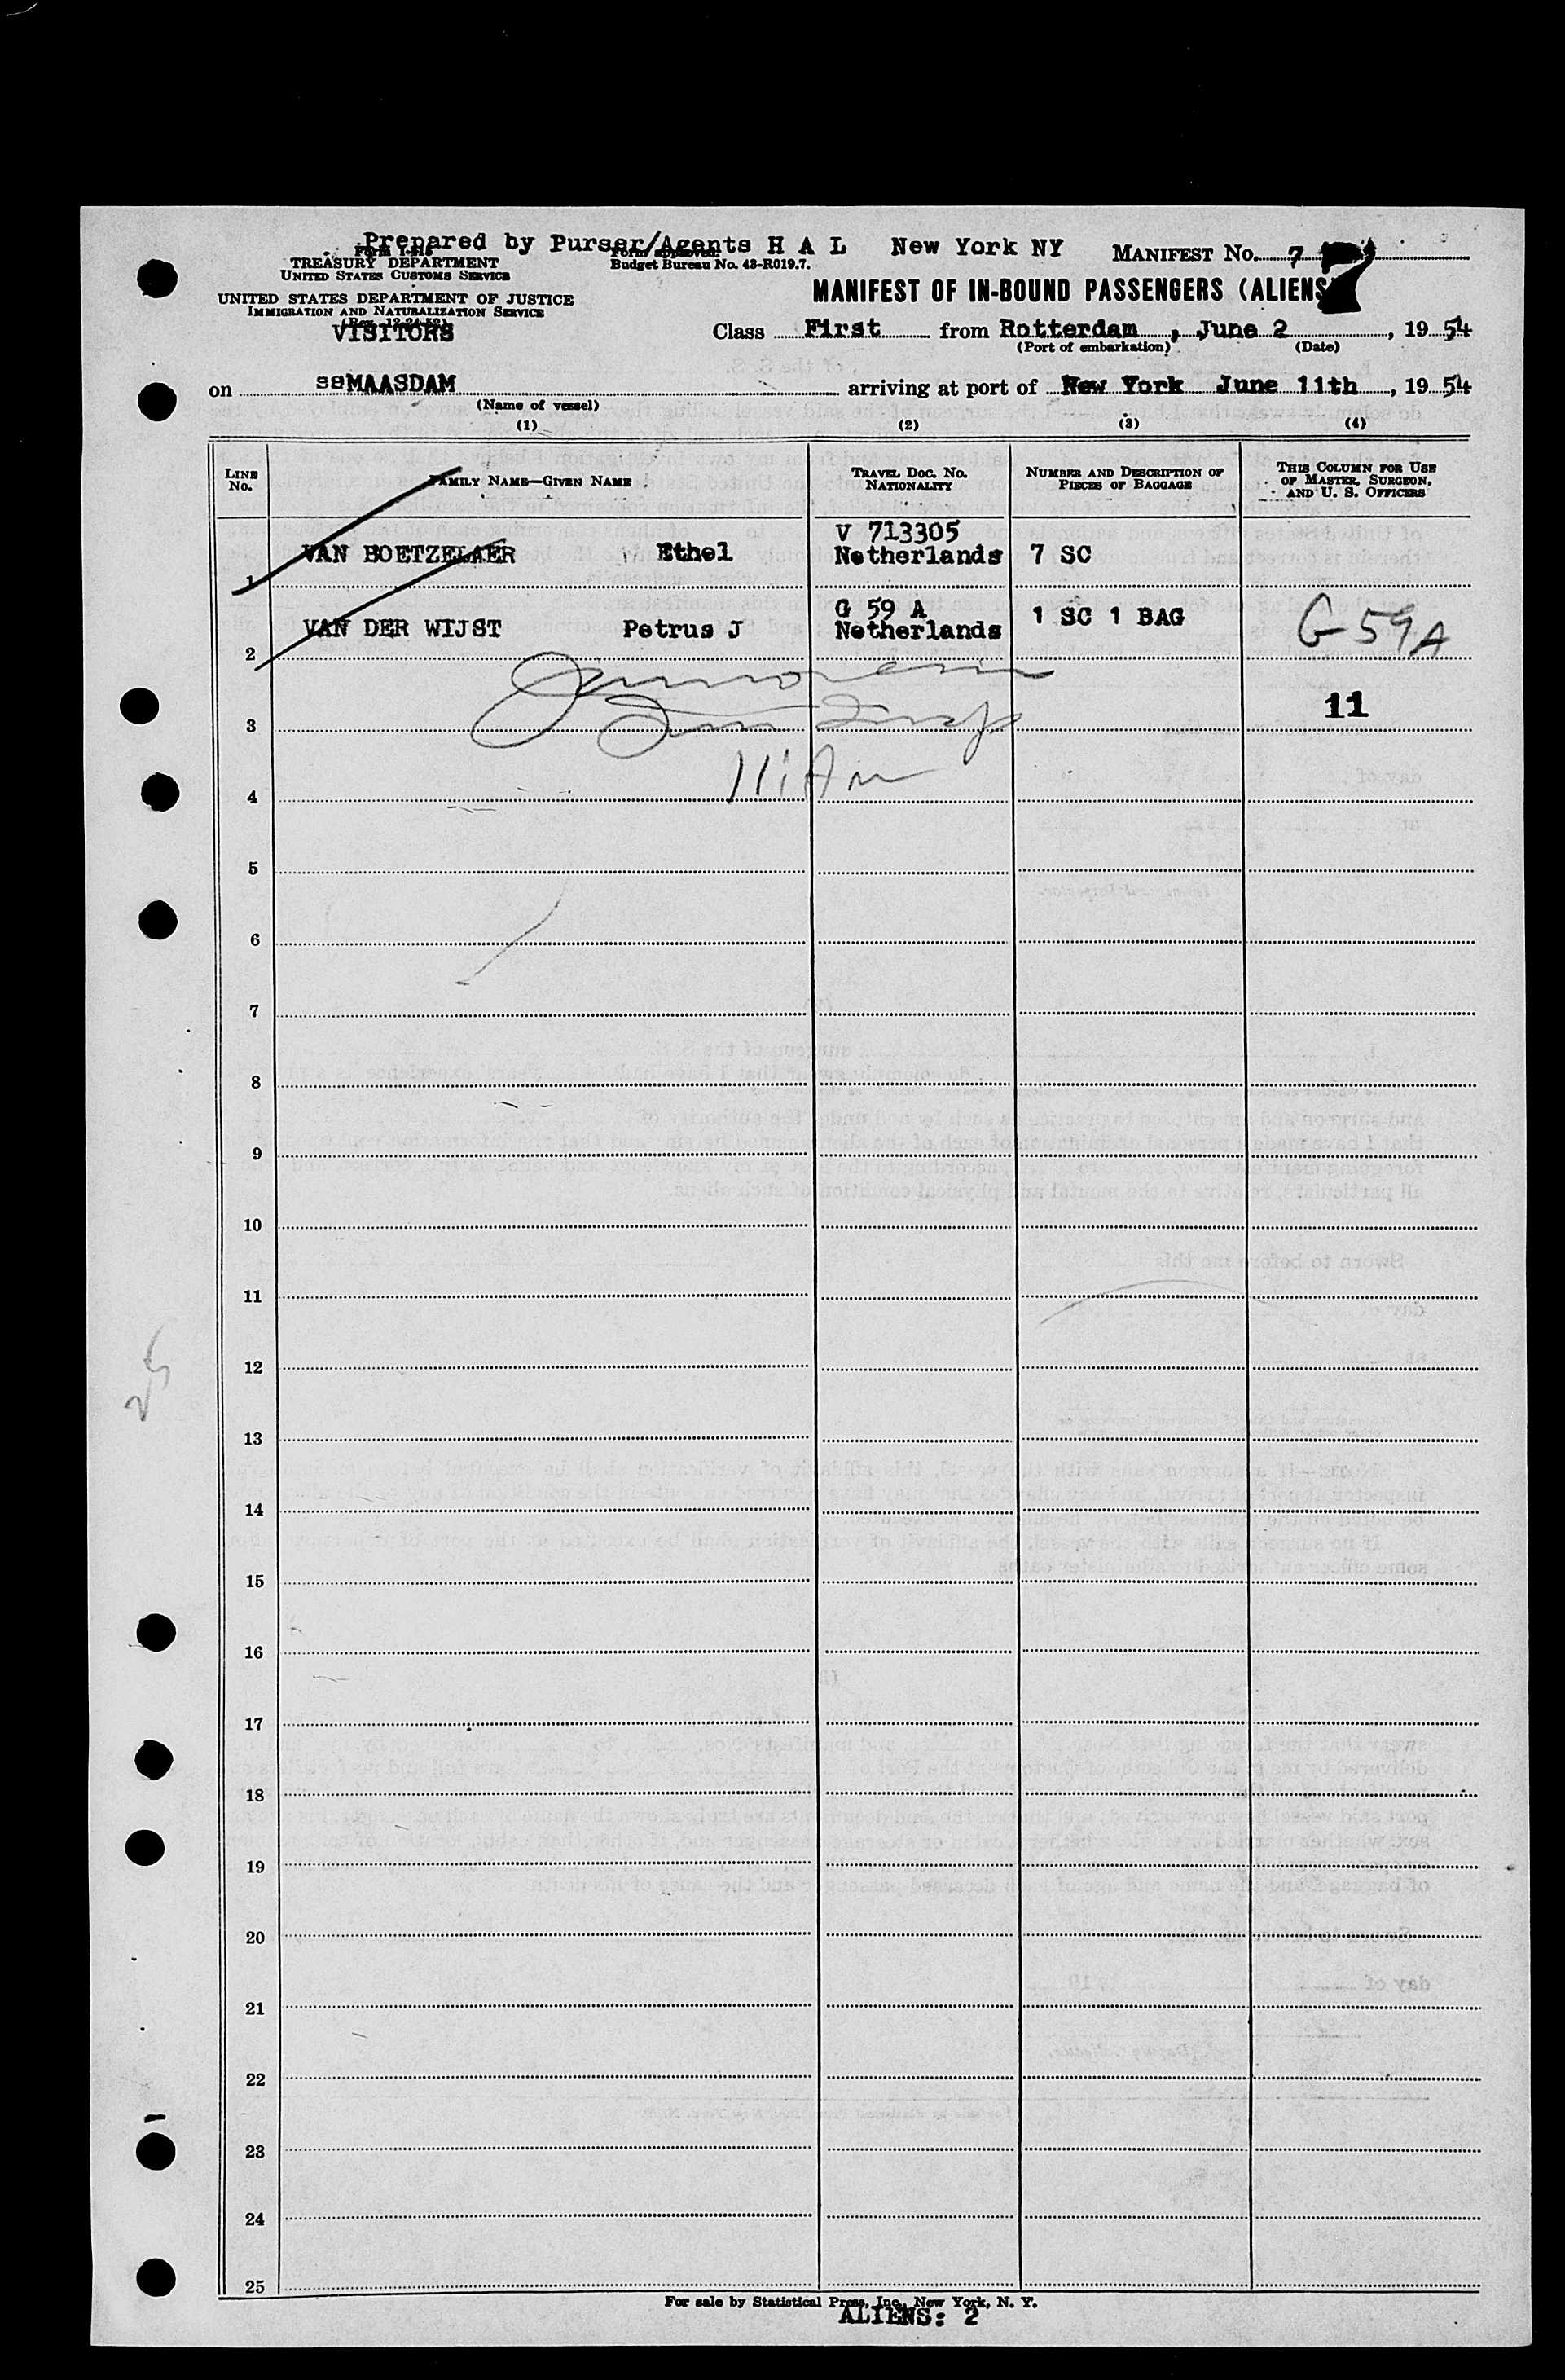 Prepared by Purser/Agents H A L New York NY
Form approved.
Budget Bureau No. 43-R019.7.
MANIFEST NO. 7
7
TREASURY DEPARTMENT
UNITED STATES CUSTOMS SERVICE
UNITED STATES DEPARTMENT OF JUSTICE
IMMIGRATION AND NATURALIZATION SERVICE
VISITORS
MANIFEST OF IN-BOUND PASSENGERS (ALIENS
Class First from Rotterdam , June 2 , 19 54
(Port of embarkation) (Date)
on ssMAASDAM arriving at port of New York June 11th , 19 54
(Name of vessel)
(1) (2) (3) (4)
LINE NO.
FAMILY NAME—GIVEN NAME
TRAVEL DOC. NO.
NATIONALITY
NUMBER AND DESCRIPTION OF
PIECES OF BAGGAGE
THIS COLUMN FOR USE
OF MASTER, SURGEON,
AND U. S. OFFICERS
V 713305
1 VAN BOETZELAER Ethel Netherlands 7 SC
G 59 A
2 VAN DER WIJST Petrus J Netherlands 1 SC 1 BAG G 59A
3 11
4
5
6
7
8
9
10
11
12
13
14
15
16
17
18
19
20
21
22
23
24
25
25
For sale by Statistical Press, Inc., New York, N. Y.
ALIENS: 2